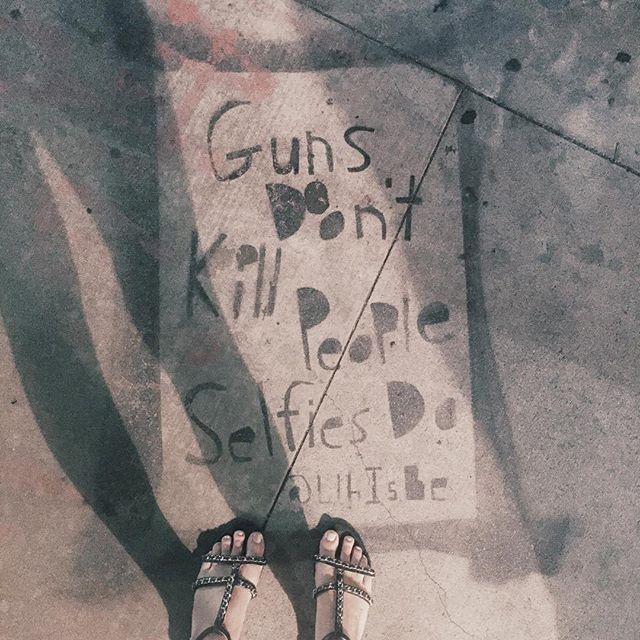 Guns
Don't
Kill
People
Selfies Do
@LihIsBe